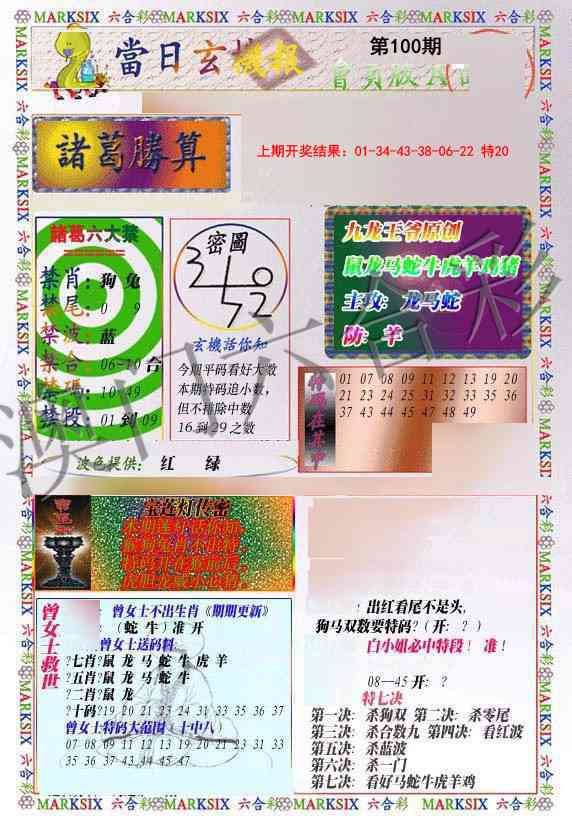 MARKSIX 六合彩 MARKSIX 六合彩 MARKSIX 六合彩 MARKSIX 六合彩
當日玄機報
第100期
諸葛勝算
上期开奖结果：01-34-43-38-06-22 特20
諸葛六大禁
禁肖：狗 兔
禁尾：0 9
禁波：蓝
禁合：06-10 合
禁碼：10 49
禁段：01 到 09
密圖
玄機活你知
今期平码看好大数
本期特码追小数，
但不排除中数
16 到 29 之数
九龙王爷原创
鼠龙马蛇牛虎羊鸡猪
主攻：龙马蛇
防：羊
01 07 08 09 11 12 13 19 20
21 23 24 25 31 32 33 35 36
37 43 44 45 47 48 49
波色提供： 红 绿
宝莲灯传密
曾女士救世
曾女士不出生肖《期期更新》
（蛇 牛）准 开
曾女士送码料
?七肖?鼠 龙 马 蛇 牛 虎 羊
?五肖?鼠 龙 马 蛇 牛
?二肖?鼠 龙
?十码?19 20 21 23 24 31 33 35 36 37
曾女士特码大范围（十中八）
07 08 09 11 12 13 19 20 21 23 31 33
35 36 37 43 44 45 47
：出红看尾不是头，
狗马双数要特码？（开：？）
白小姐必中特段！ 准！
08—45 开：？
特七决
第一决：杀狗双 第二决：杀零尾
第三决：杀合数九 第四决：看红波
第五决：杀蓝波
第六决：杀一门
第七决：看好马蛇牛虎羊鸡
MARKSIX 六合彩 MARKSIX 六合彩 MARKSIX 六合彩 MARKSIX 六合彩